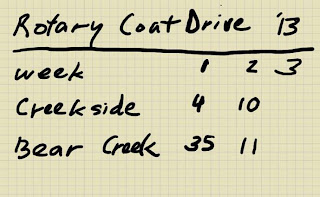 Rotary Coat Drive '13
week 1 2 3
Creekside 4 10
Bear Creek 35 11